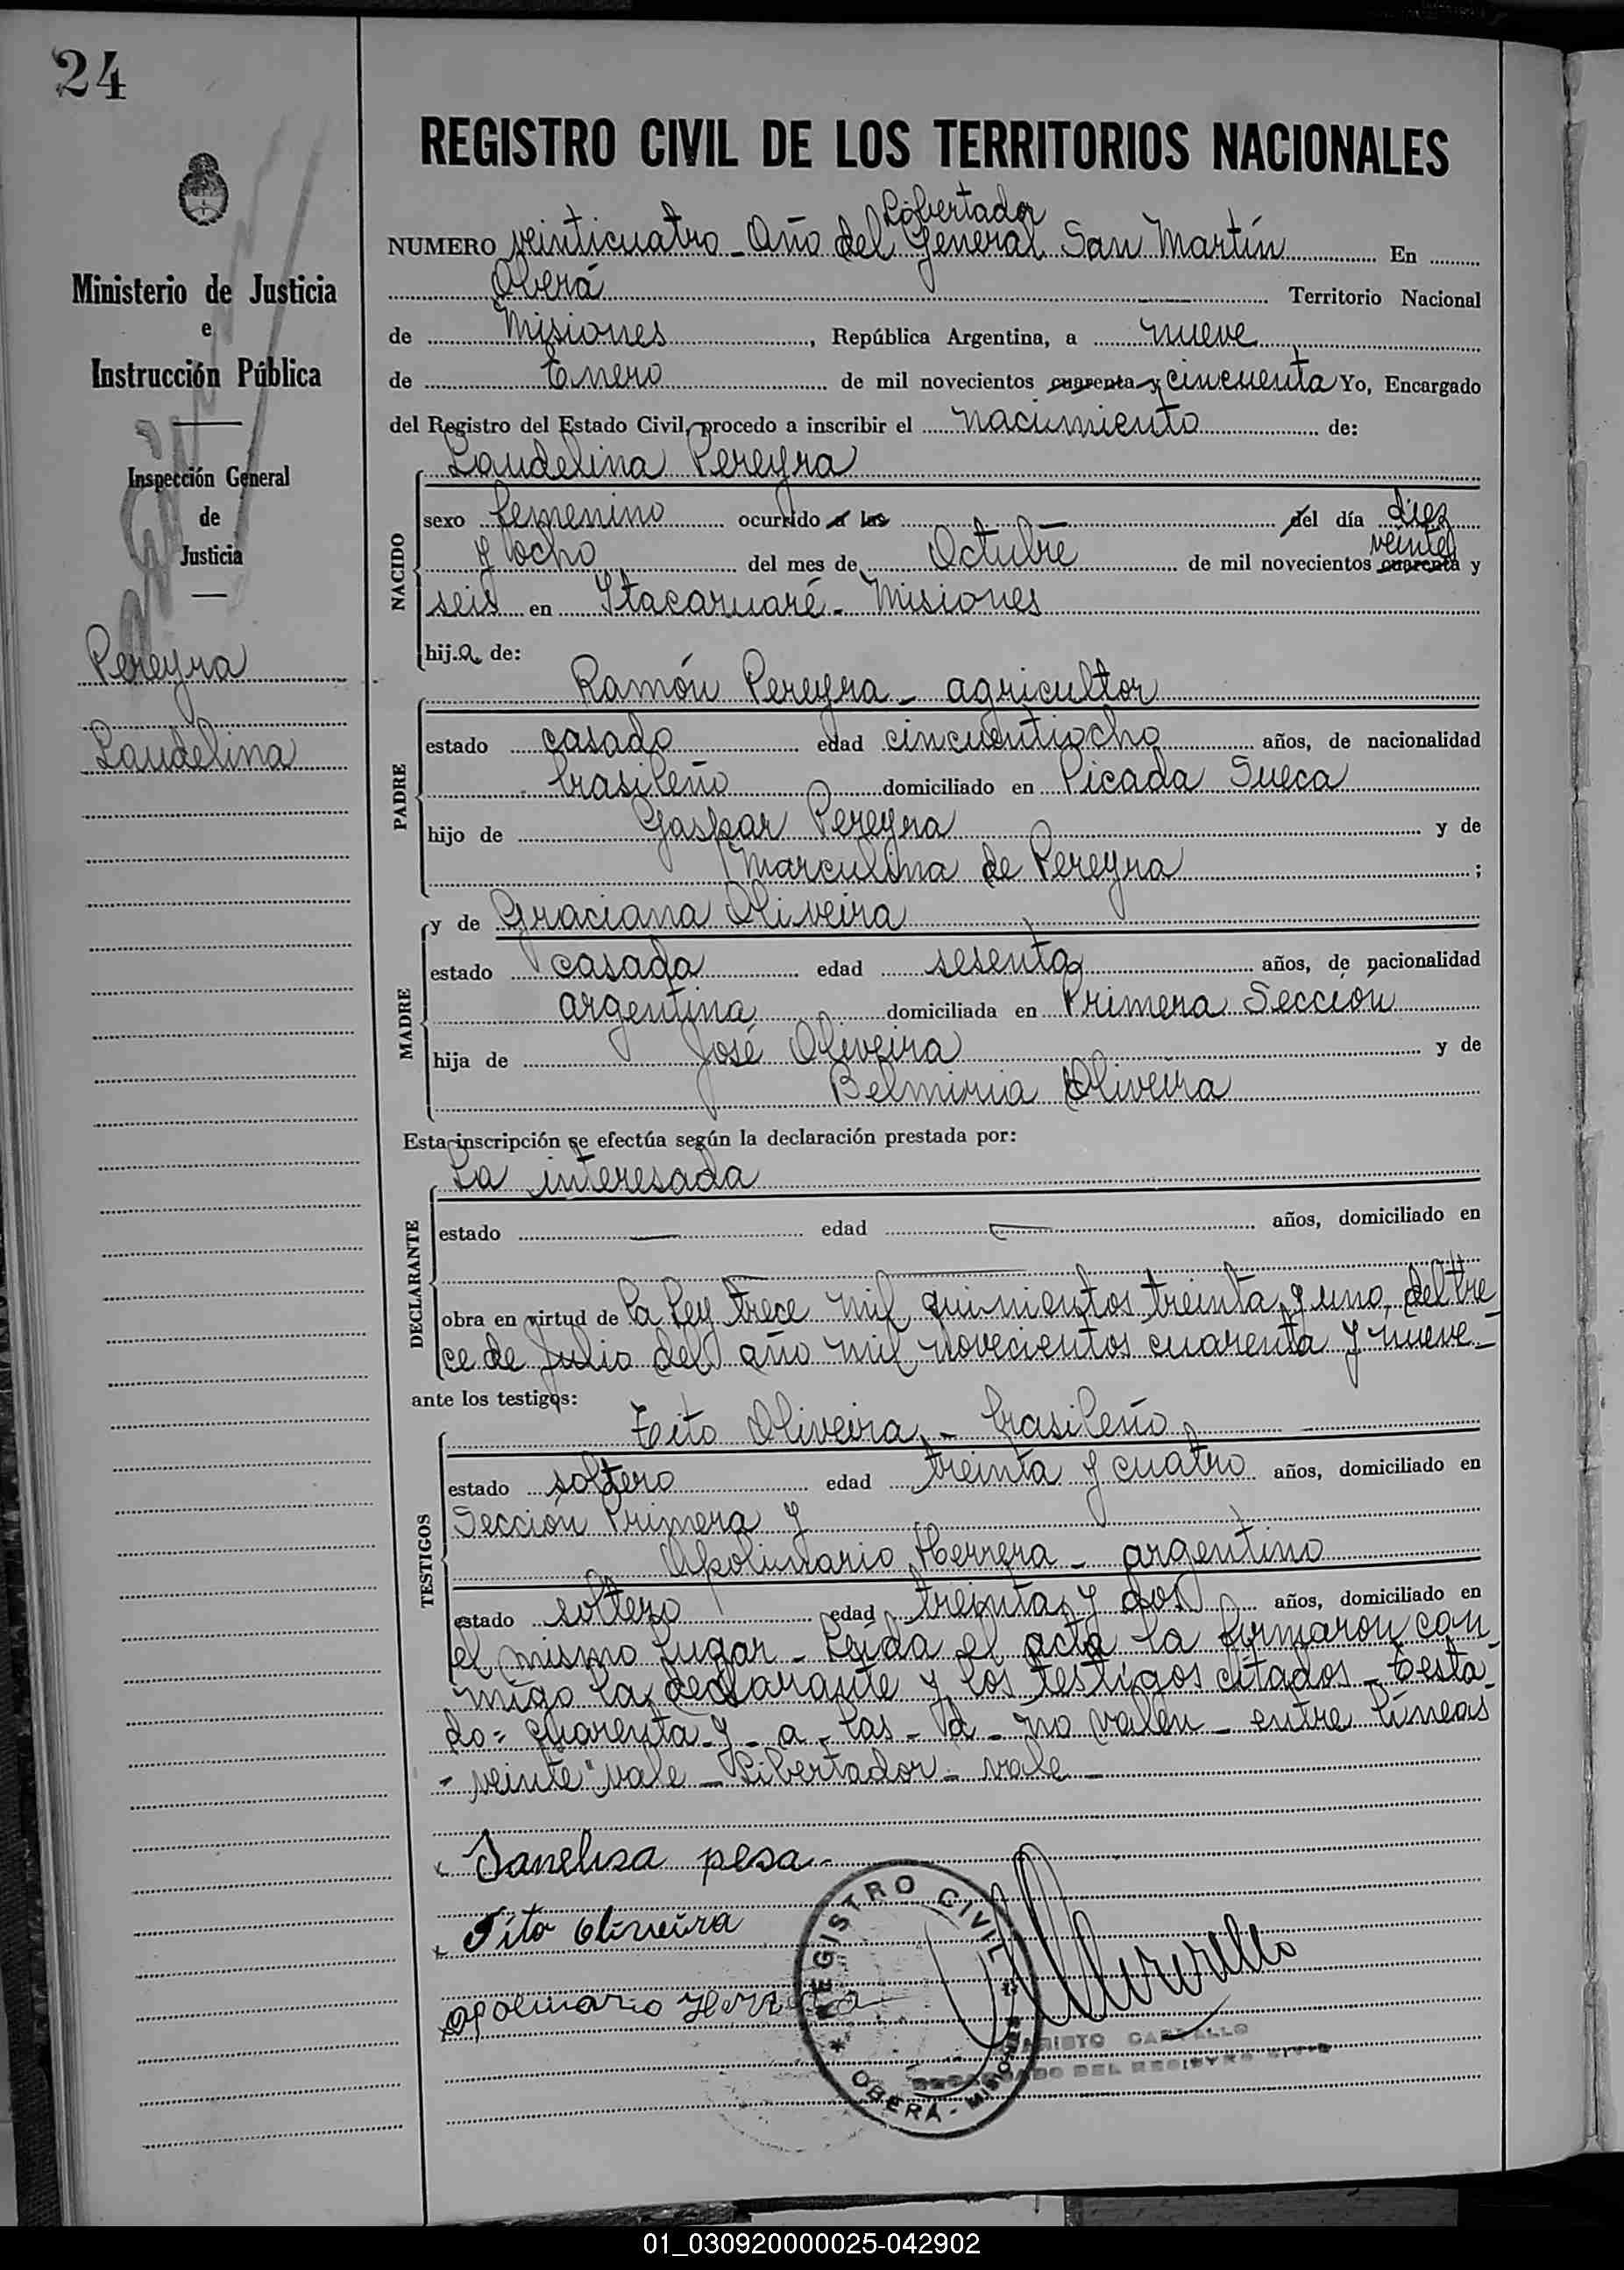 24
Ministerio de Justicia
e
Instrucción Pública
Inspección General
de
Justicia
Pereyra
Laudelina
REGISTRO CIVIL DE LOS TERRITORIOS NACIONALES
Libertador
NUMERO veinticuatro - Año del General San Martín En
Oberá Territorio Nacional
de Misiones, República Argentina, a nueve
de Enero de mil novecientos cuarenta y cincuenta Yo, Encargado
del Registro del Estado Civil, procedo a inscribir el nacimiento de:
Laudelina Pereyra
NACIDO
sexo femenino ocurrido a las del día diez
y ocho del mes de Octubre de mil novecientos cuarenta y
veinte
seis en Itacaruaré - Misiones
hija de:
Ramón Pereyra - agricultor
PADRE
estado casado edad cincuentiocho años, de nacionalidad
brasileño domiciliado en Picada Sueca
hijo de Gaspar Pereyra y de
Marculina de Pereyra ;
y de Graciana Oliveira
MADRE
estado casada edad sesenta años, de nacionalidad
argentina domiciliada en Primera Sección
hija de José Oliveira y de
Belmiria Oliveira
Esta inscripción se efectúa según la declaración prestada por:
La interesada
DECLARANTE
estado edad años, domiciliado en
obra en virtud de la Ley trece mil quinientos treinta y uno del tre
ce de Julio del año mil novecientos cuarenta y nueve -
ante los testigos:
Teito Oliveira - brasileño
TESTIGOS
estado soltero edad treinta y cuatro años, domiciliado en
Sección Primera y
Apolinario Herrera - argentino
estado soltero edad treinta y dos años, domiciliado en
el mismo lugar - Leída el acta la firmaron con
migo la declarante y los testigos citados - Testa
do = cuarenta - y - a - las - d - no valen - entre líneas
- veinte" vale - Libertador - vale -
Tito Oliveira
REGISTRO CIVIL
OBERÁ - MISIONES
DEL REGISTRO CIVIL
01_030920000025-042902